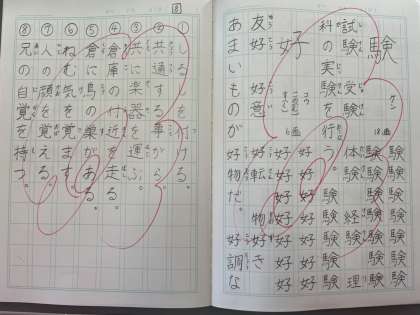 験
ケン
18画
験験験験験験
験験験験験験
試験 受験 体験 経験 理
科の実験を行う。
験験験験験
好
コウ
6画
好好好好好
好好好好好
友好 好意 好転 物好き
あまいものが好物だ。好調な
8
①しるしを付ける。
②共通する事がら。
③共に楽器を運ぶ。
④倉庫の付近を走る。
⑤倉に鳥の巣がある。
⑥ねむ気を覚ます。
⑦人の顔を覚える。
⑧兄の自覚を持つ。